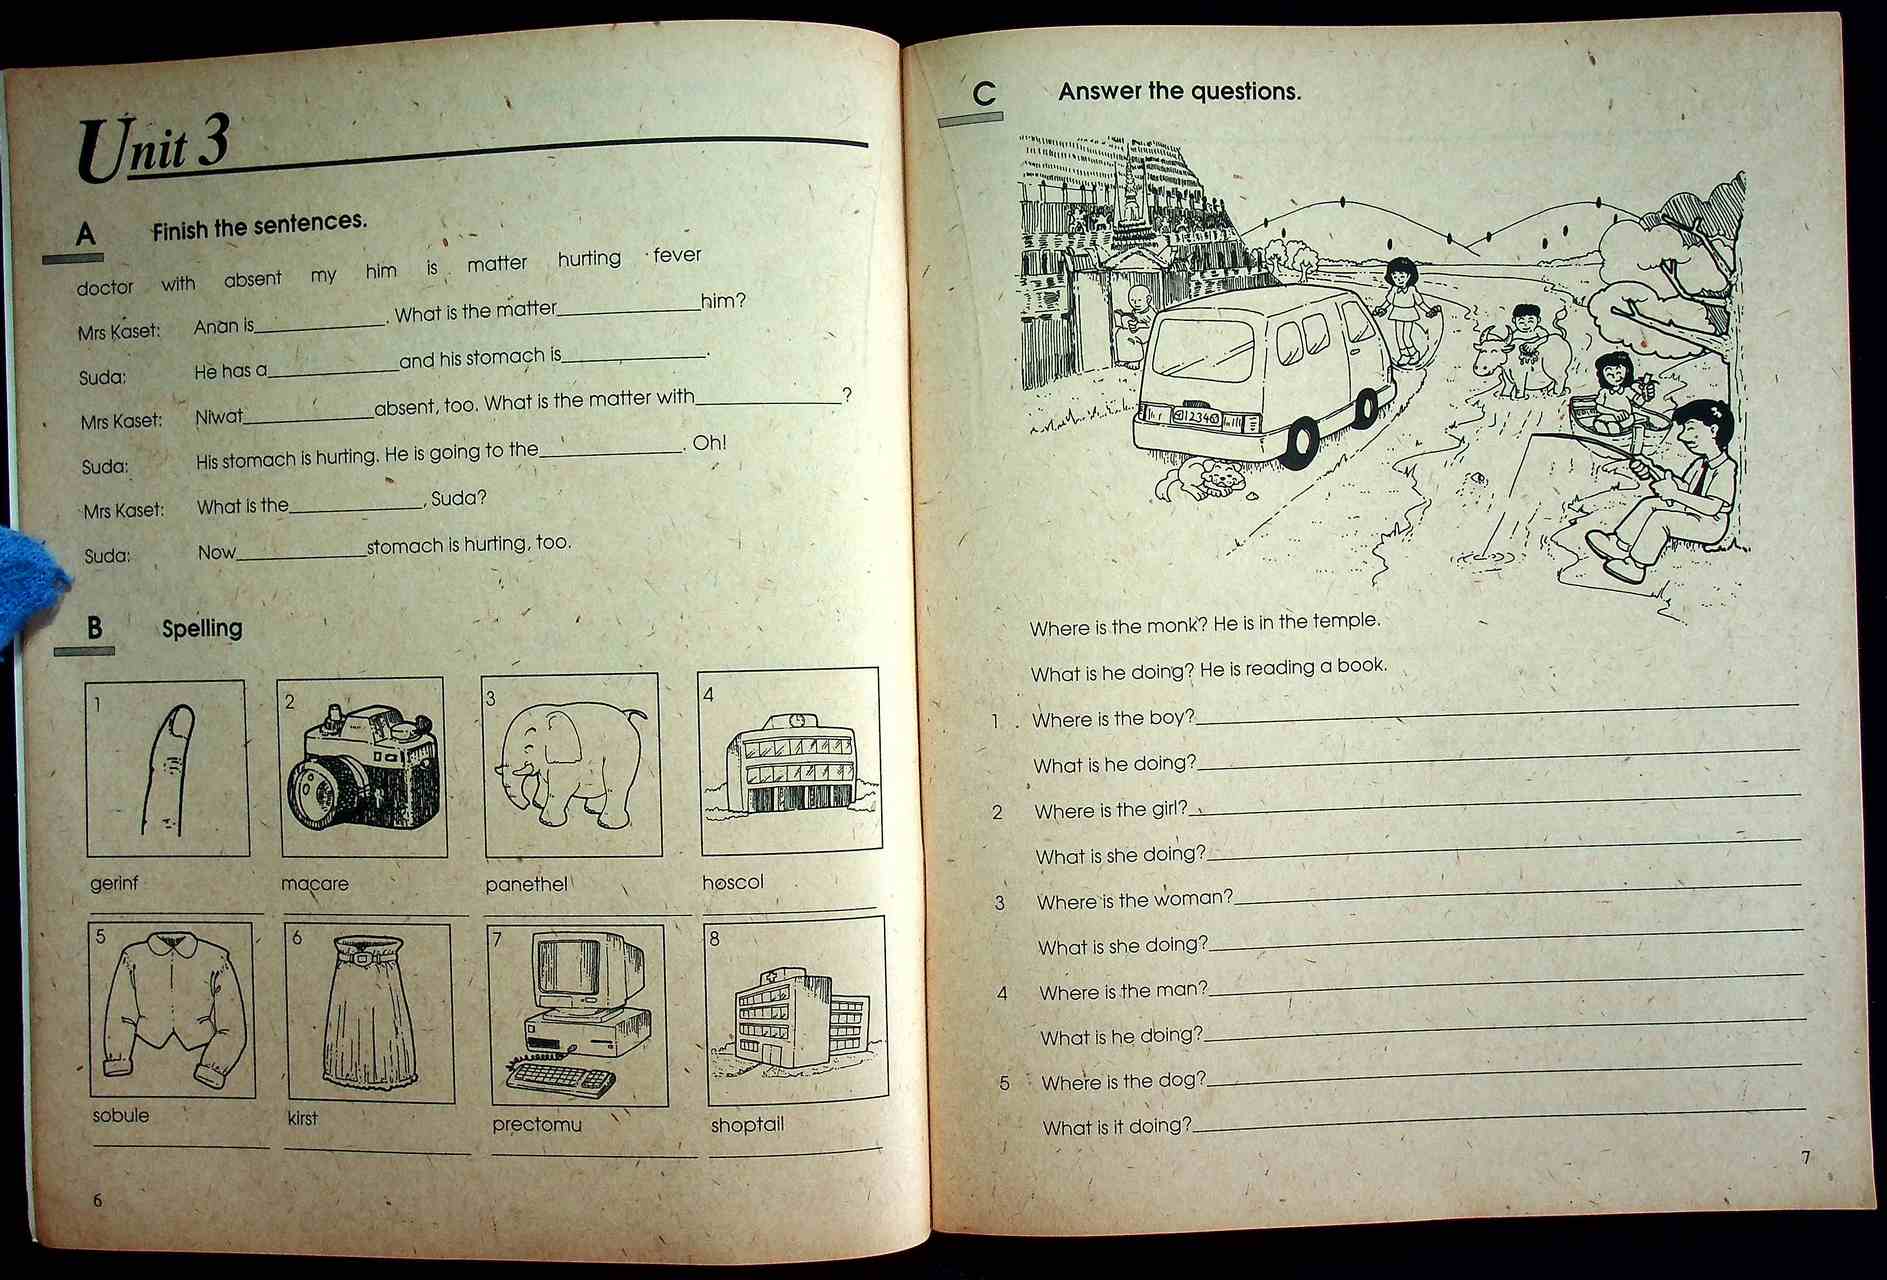 Unit 3
A Finish the sentences.
doctor with absent my him is matter hurting fever
Mrs Kaset: Anan is____________. What is the matter____________him?
Suda: He has a____________and his stomach is____________.
Mrs Kaset: Niwat____________absent, too. What is the matter with____________?
Suda: His stomach is hurting. He is going to the____________. Oh!
Mrs Kaset: What is the____________, Suda?
Suda: Now____________stomach is hurting, too.
B Spelling
1 2 3 4
gerinf macare panethel hoscol
5 6 7 8
sobule kirst prectomu shoptail
6
C Answer the questions.
01234
Where is the monk? He is in the temple.
What is he doing? He is reading a book.
1 Where is the boy?____________
What is he doing?____________
2 Where is the girl?____________
What is she doing?____________
3 Where is the woman?____________
What is she doing?____________
4 Where is the man?____________
What is he doing?____________
5 Where is the dog?____________
What is it doing?____________
7